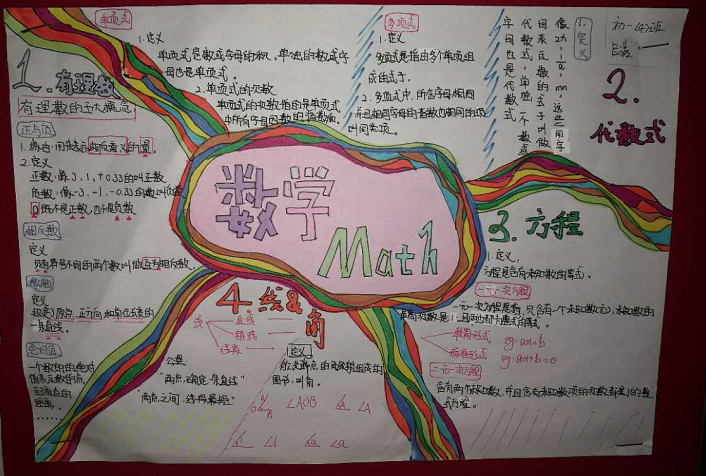 数学
Math
1.有理数
有理数的五大概念
正与负
2.定义
正数:像3,1,+0.33的叫正数
负数:像-3,-1,-0.33的数叫负数
0既不是正数,也不是负数
相反数
定义
只有符号不同的两个数叫做互为相反数。
数轴
定义
规定了原点,正方向和单位长度的
一条直线。
绝对值
单项式
1.定义
单项式是数或字母的积。单独的数或字
母也是单项式。
2.单项式的次数
单项式的次数指的是单项式
中所有字母因数的指数和。
多项式
1.定义
多项式是指由多个单项组
成的式子。
2.多项式中,所含字母相同
并且相同字母的指数也相同的项
叫同类项。
初一(4)班
2.
代数式
1.定义
代数式。单独一个数或
字母也是代数式
3.方程
1.定义,
方程是含有未知数的等式。
一元一次方程
一元一次方程是指,只含有一个未知数(元),未知数的
最高次数是1,且两边都为整式的等式。
最简形式 eg:ax=b
标准形式 eg:ax+b=0
4.线&角
线
直线
射线
线段
公里
"两点确定一条直线"
"两点之间,线段最短"
定义
图形,叫角。
∠AOB
∠A
∠1
∠α